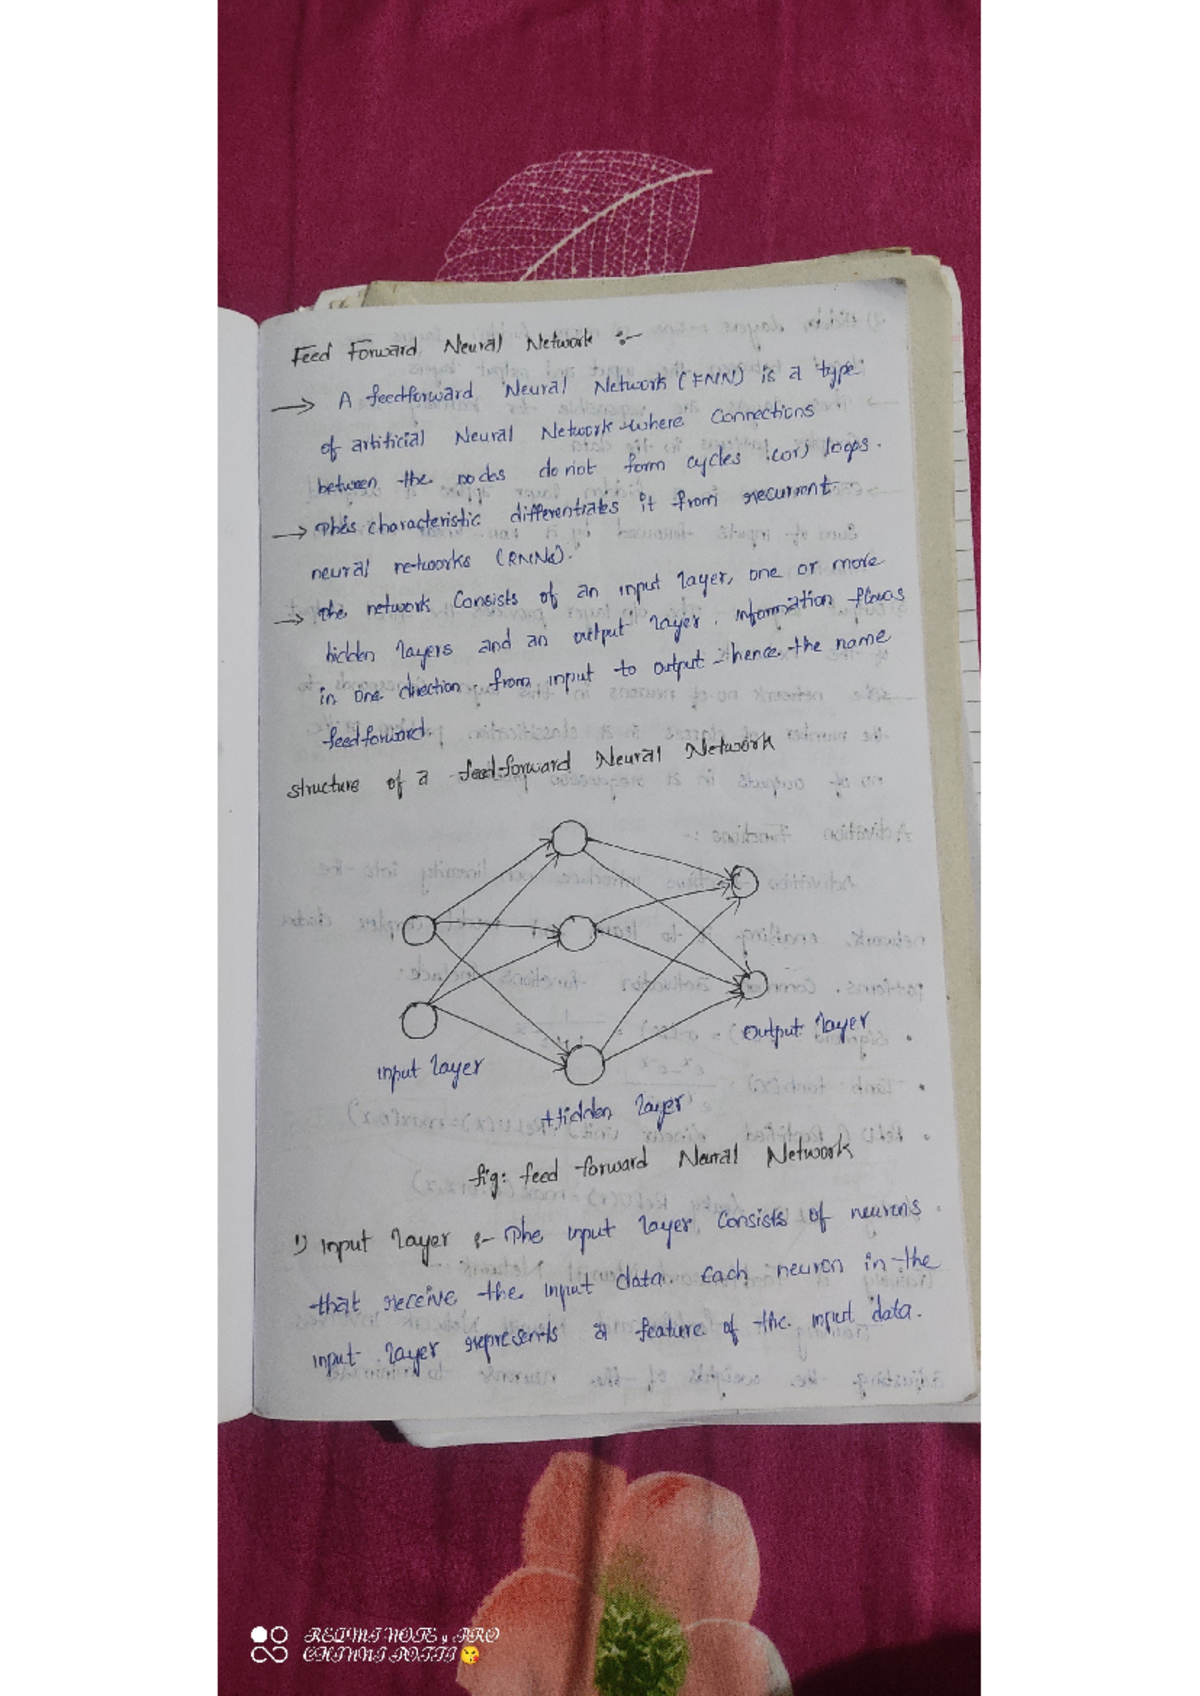 Feed Forward Neural Network :-
→ A feedforward Neural Network (FNN) is a type
of artificial Neural Network where connections
between the nodes do not form cycles (or) loops.
→ This characteristic differentiates it from recurrent
neural networks (RNNs).
→ The network consists of an input layer, one or more
hidden layers and an output layer. Information flows
in one direction from input to output hence the name
feedforward.
structure of a feed-forward Neural Network
Input layer
Hidden layer
Output layer
fig: feed forward Neural Network
1) Input layer :- The input layer consists of neurons
that receive the input data. Each neuron in the
input layer represents a feature of the input data.
REDMI NOTE 9 PRO
CHINNI POTTI